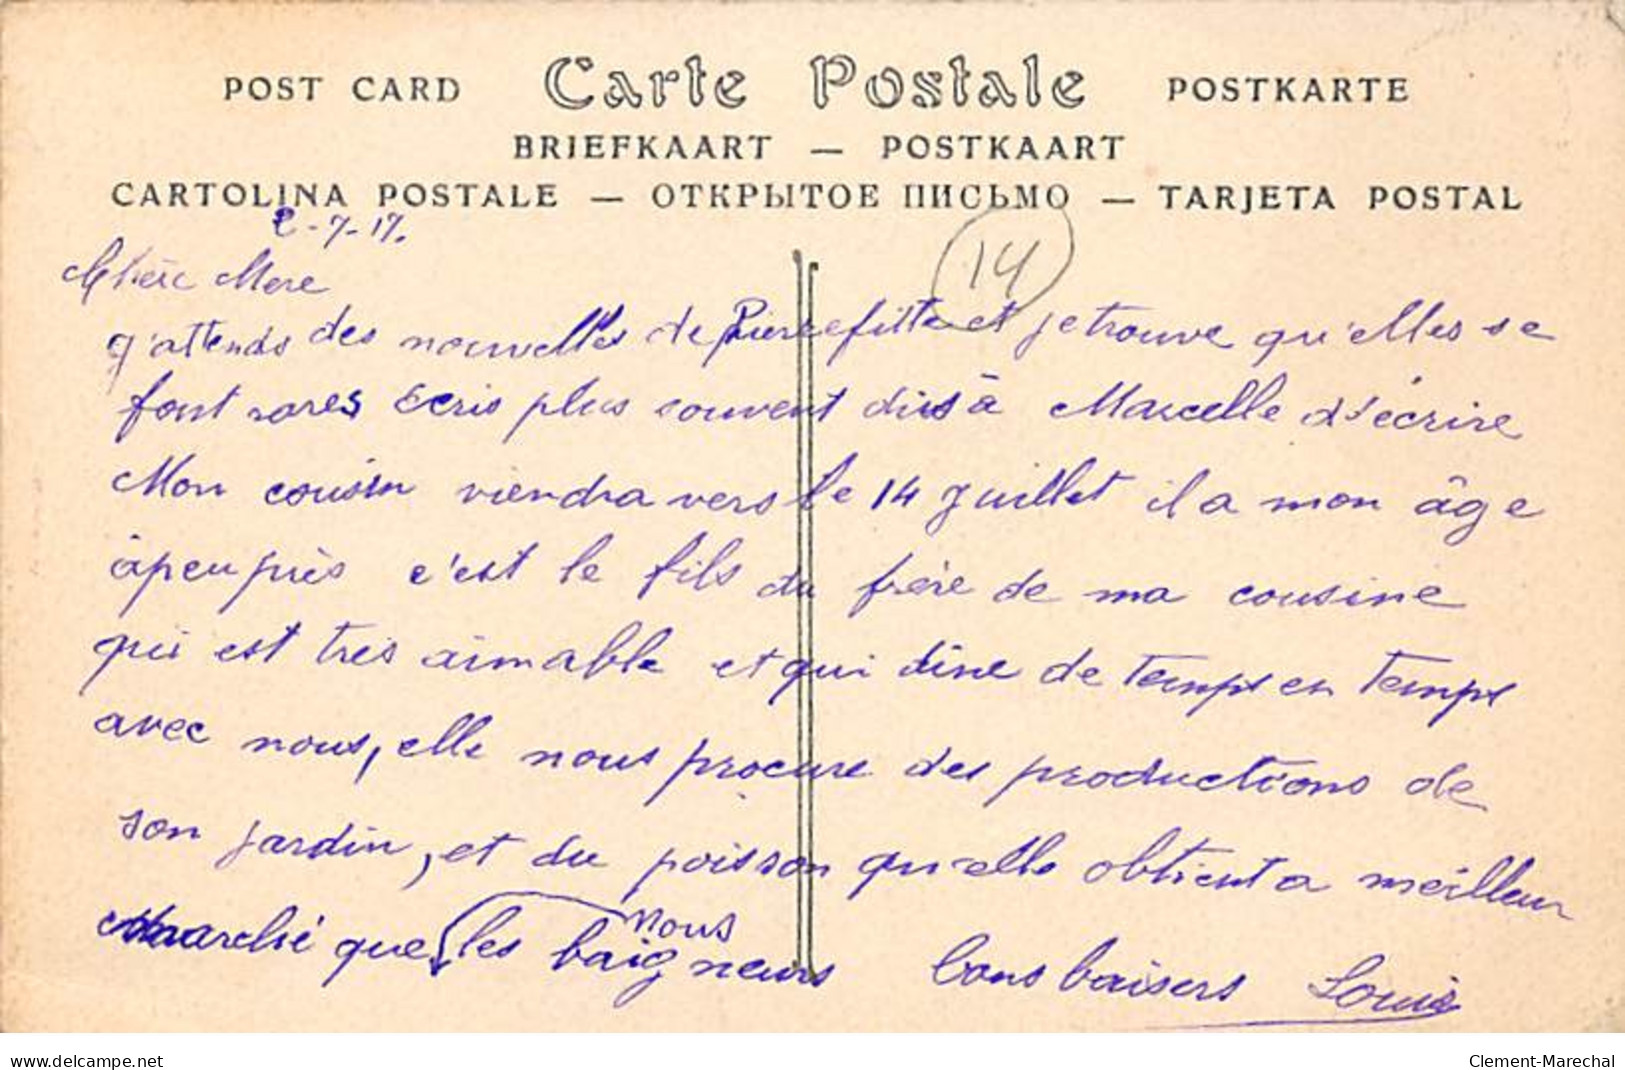 POST CARD Carte Postale POSTKARTE
BRIEFKAART — POSTKAART
CARTOLINA POSTALE — ОТКРЫТОЕ ПИСЬМО — TARJETA POSTAL
2-7-17.
14
Chère Mere
j'attends des nouvelles de Pierrefitte et je trouve qu'elles se
font rares écris plus souvent dis à Marcelle d'écrire
Mon cousin viendra vers le 14 juillet il a mon âge
à peu près c'est le fils du frère de ma cousine
qui est très aimable et qui dine de temps en temps
avec nous, elle nous procure des productions de
son jardin, et du poisson qu'elle obtient a meilleur
marché que nous les baigneurs bons baisers Louis
www.delcampe.net
Clement-Marechal